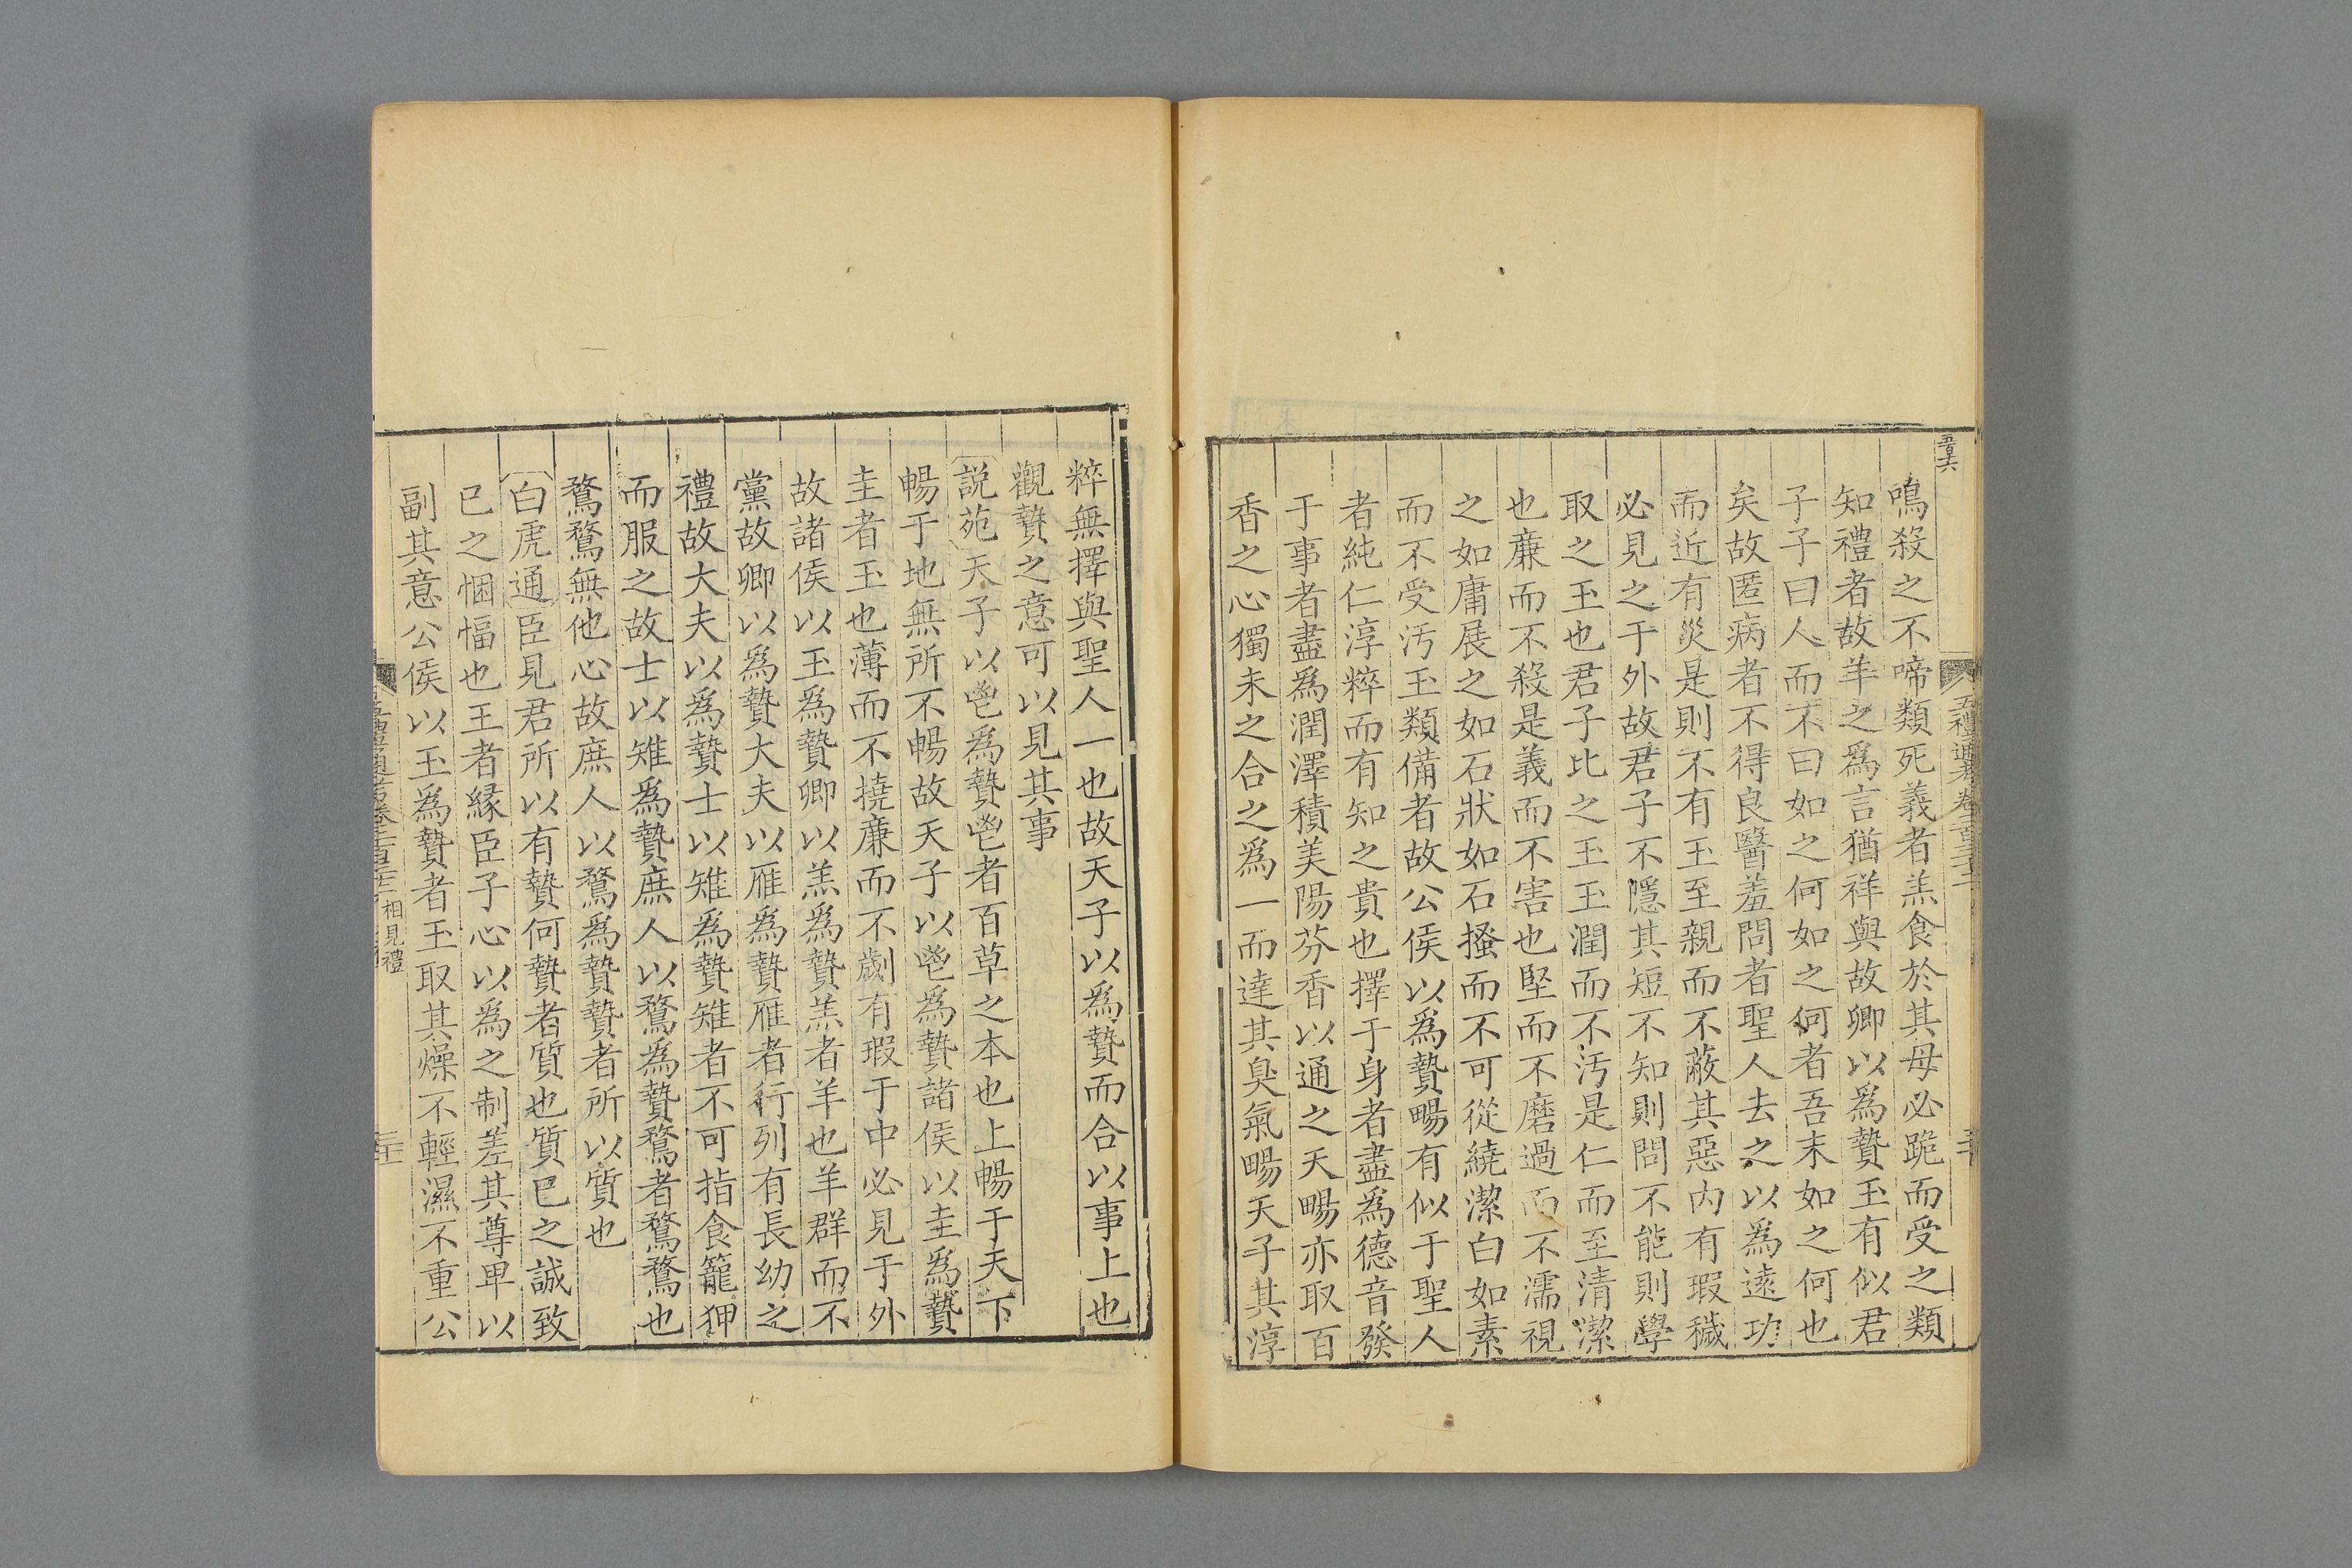 鳴殺之不啼類死義者羔食於其母必跪而受之類
知禮者故羊之爲言猶祥與故卿以爲贄玉有似君
子子曰人而不曰如之何如之何者吾末如之何也
矣故匿病者不得良醫羞問者聖人去之以爲遠功
而近有災是則不有玉至親而不蔽其惡內有瑕穢
必見之于外故君子不隱其短不知則問不能則學
取之玉也君子比之玉玉潤而不汚是仁而至清潔
也亷而不殺是義而不害也堅而不磨過而不濡視
之如庸展之如石狀如石搔而不可從繞潔白如素
而不受汚玉類備者故公侯以爲贄暢有似于聖人
者純仁淳粹而有知之貴也擇于身者盡爲德音發
于事者盡爲潤澤積美陽芬香以通之天暢亦取百
香之心獨末之合之爲一而達其臭氣暢天子其淳
粹無擇與聖人一也故天子以爲贄而合以事上也
觀贄之意可以見其事
説苑天子以鬯爲贄鬯者百草之本也上暢于天下
暢于地無所不暢故天子以鬯爲贄諸侯以圭爲贄
圭者玉也薄而不撓亷而不劌有瑕于中必見于外
故諸侯以玉爲贄卿以羔爲贄羔者羊也羊群而不
黨故卿以爲贄大夫以雁爲贄雁者行列有長幼之
禮故大夫以爲贄士以雉爲贄雉者不可指食籠狎
而服之故士以雉爲贄庶人以鶩爲贄鶩者鶩鶩也
鶩鶩無他心故庶人以鶩爲贄贄者所以質也
白虎通臣見君所以有贄何贄者質也質已之誠致
已之悃愊也王者縁臣子心以爲之制差其尊卑以
副其意公侯以玉爲贄者玉取其燥不輕濕不重公
相見禮